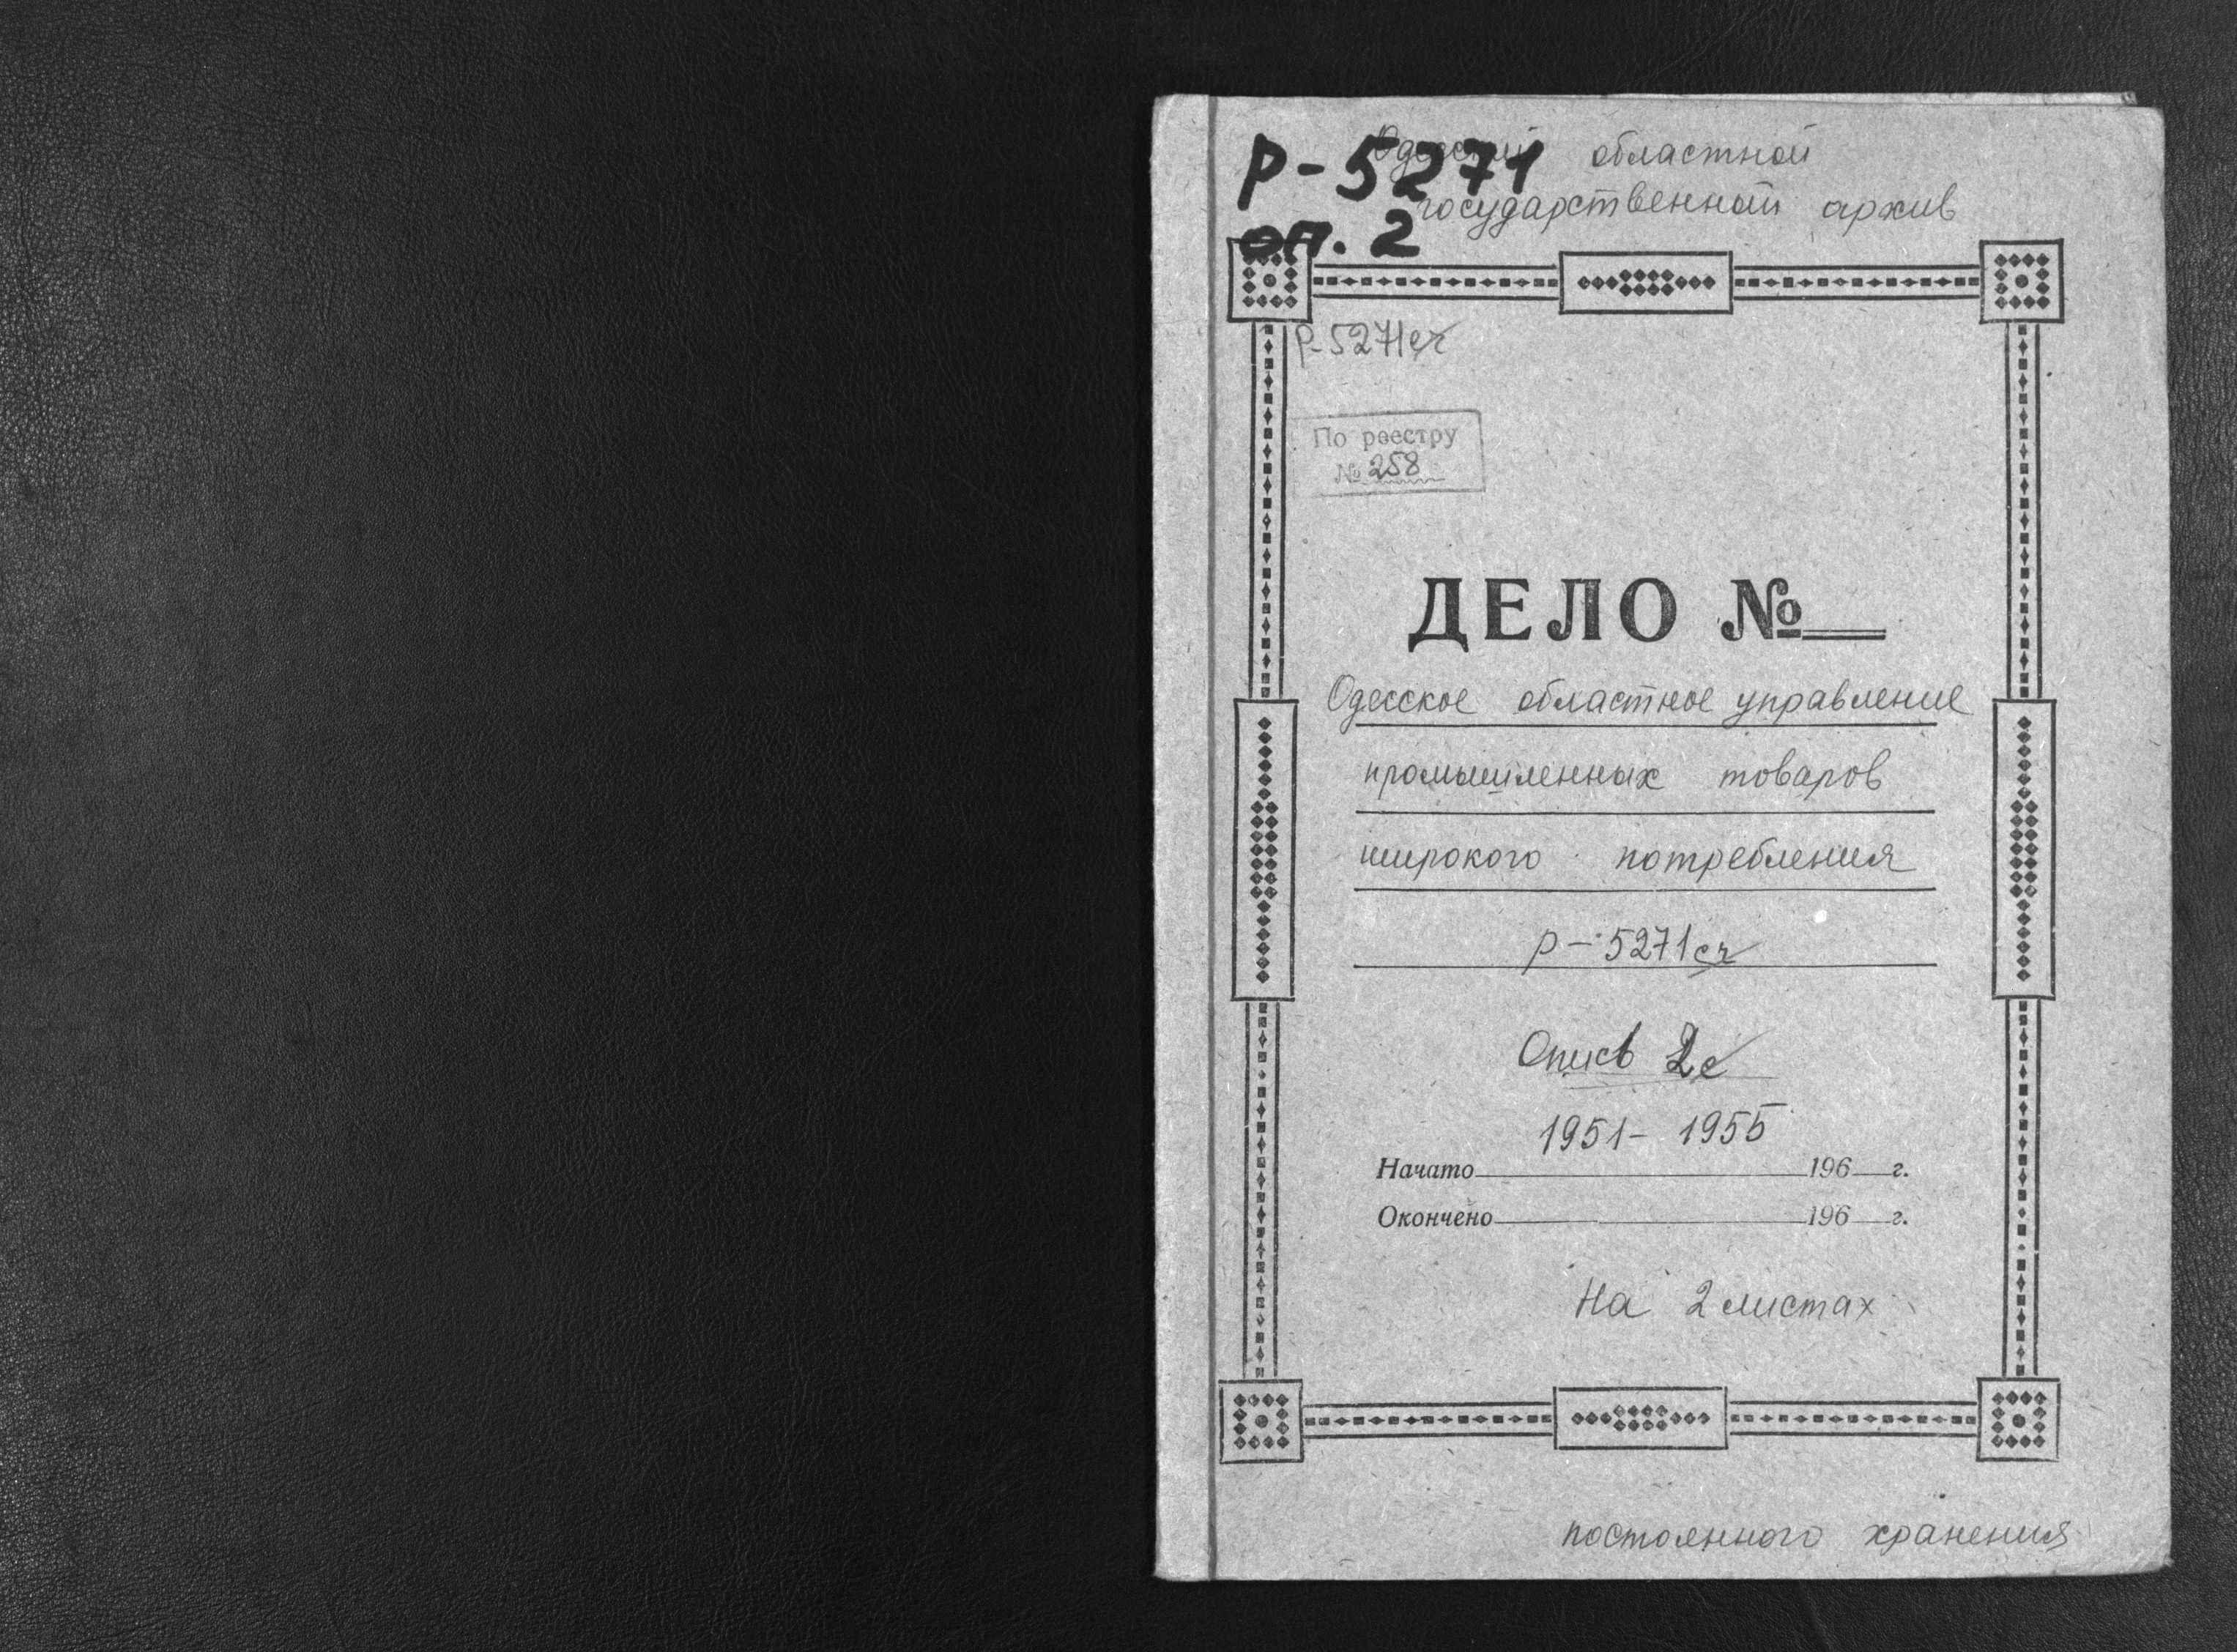 Одесский областной
государственный архив
Р-5271
оп. 2
Р-5271сч
По реестру
№ 258
ДЕЛО №
Одесское областное управление
промышленных товаров
широкого потребления
Р-5271сч
Опись 2с
1951-1955
Начато 196 г.
Окончено 196 г.
На 2 листах
постоянного хранения